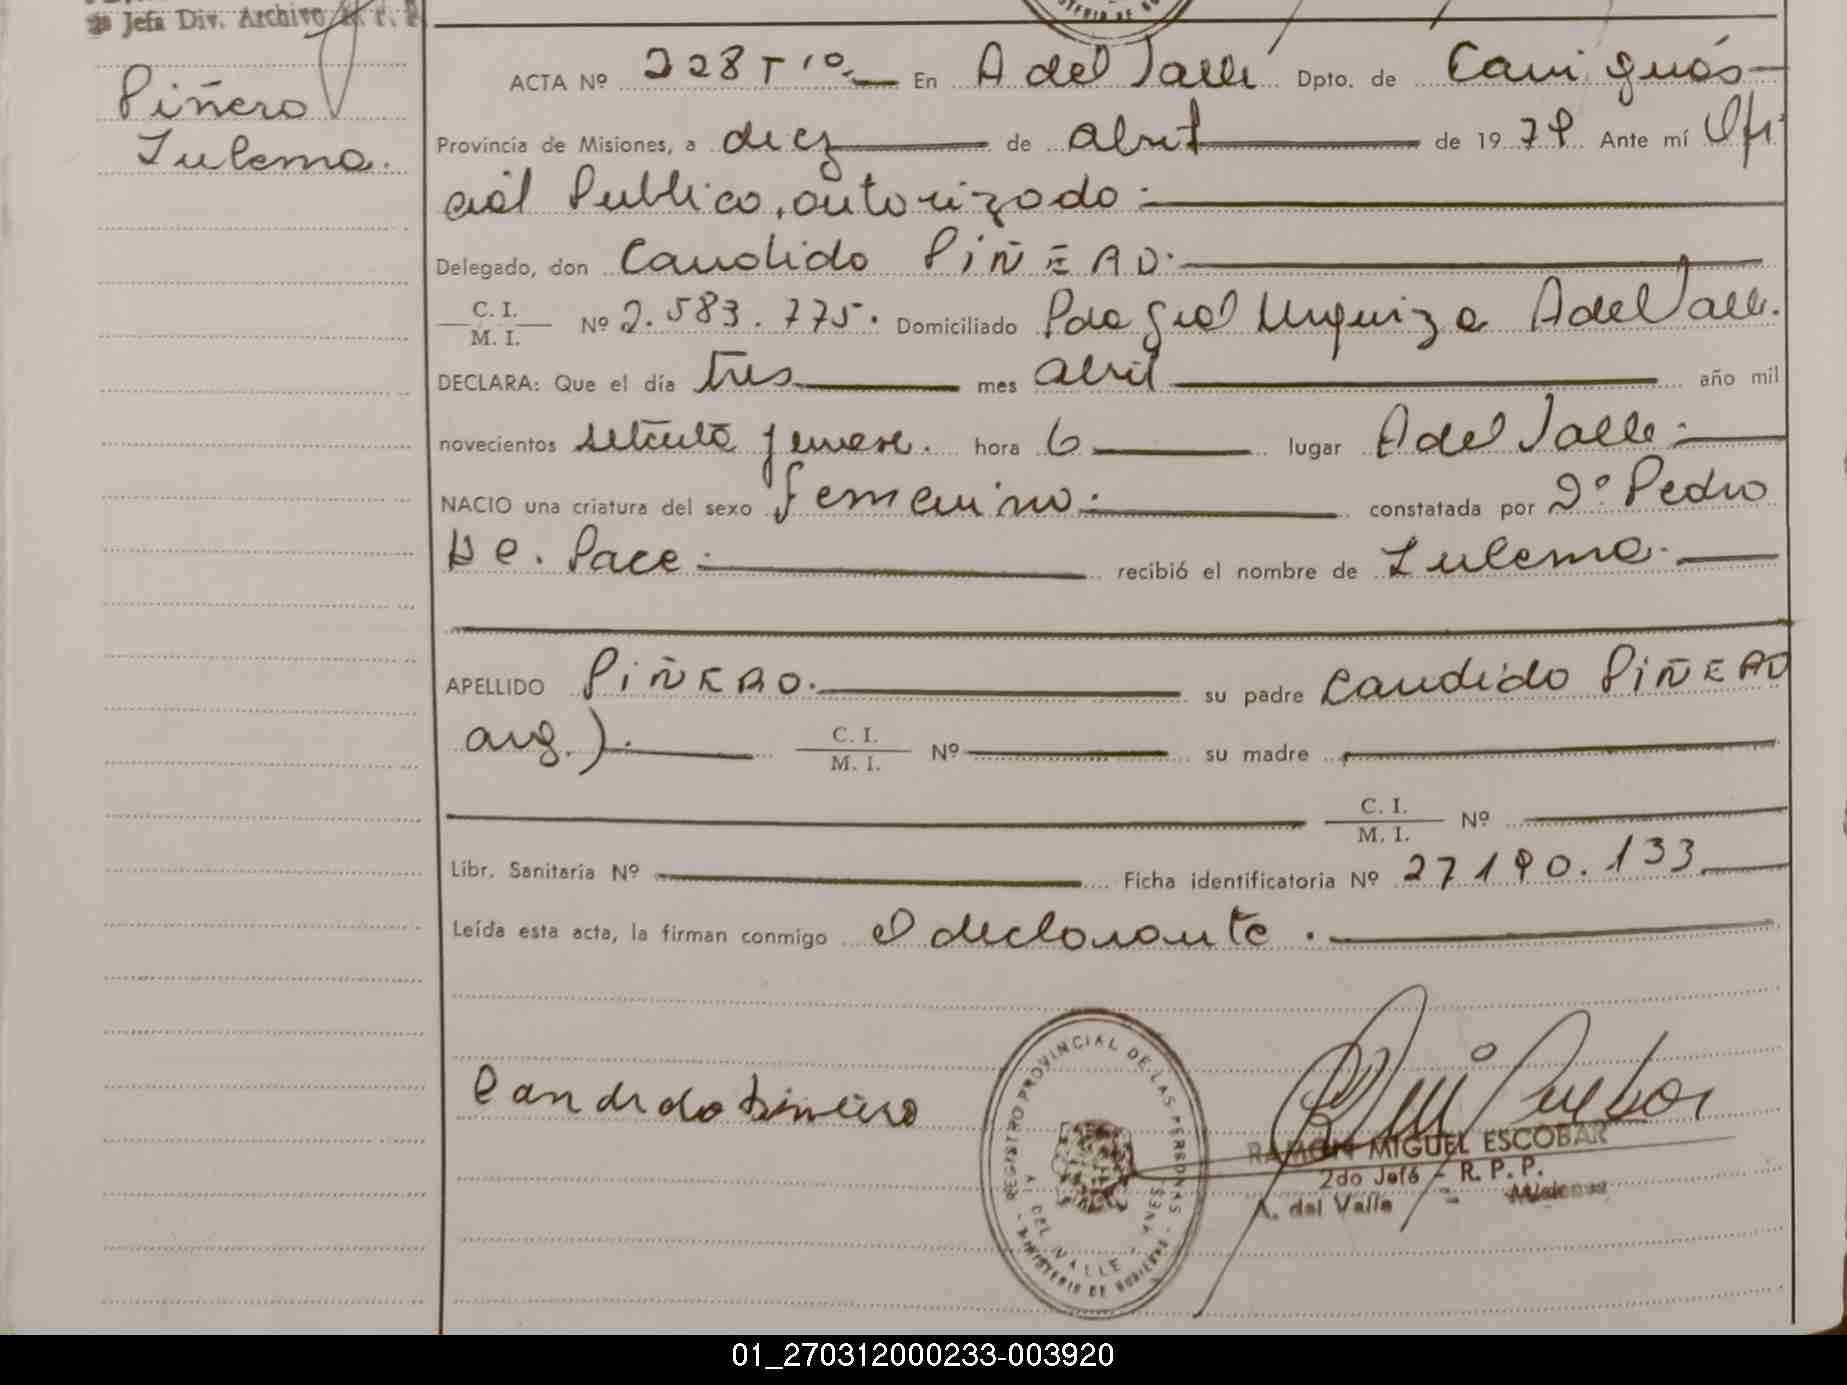 Jefa Div. Archivo R. P. P.
Piñero
Zulema.
ACTA Nº 228 Tº 1º. En A del Valle Dpto. de Cainguás
Provincia de Misiones, a diez de abril de 1979. Ante mí Ofi
cial Publico, autorizado:
Delegado, don Candido PIÑERO.
C. I.
M. I. Nº 2.583.775. Domiciliado Pdo Gral Urquiza A del Valle.
DECLARA: Que el día tres mes abril año mil
novecientos setenta y nueve. hora 6 lugar A del Valle.
NACIO una criatura del sexo femenino. constatada por Dº Pedro
De. Pace. recibió el nombre de Zulema.
APELLIDO PIÑERO. su padre Candido PIÑERO
arg.). C. I.
M. I. Nº su madre
C. I.
M. I. Nº
Libr. Sanitaria Nº Ficha identificatoria Nº 27190.133
Leída esta acta, la firman conmigo el declarante.
REGISTRO PROVINCIAL DE LAS PERSONAS
DEL VALLE
MINISTERIO DE GOBIERNO
RAMON MIGUEL ESCOBAR
2do Jefe - R. P. P.
A. del Valle Misiones
01_270312000233-003920